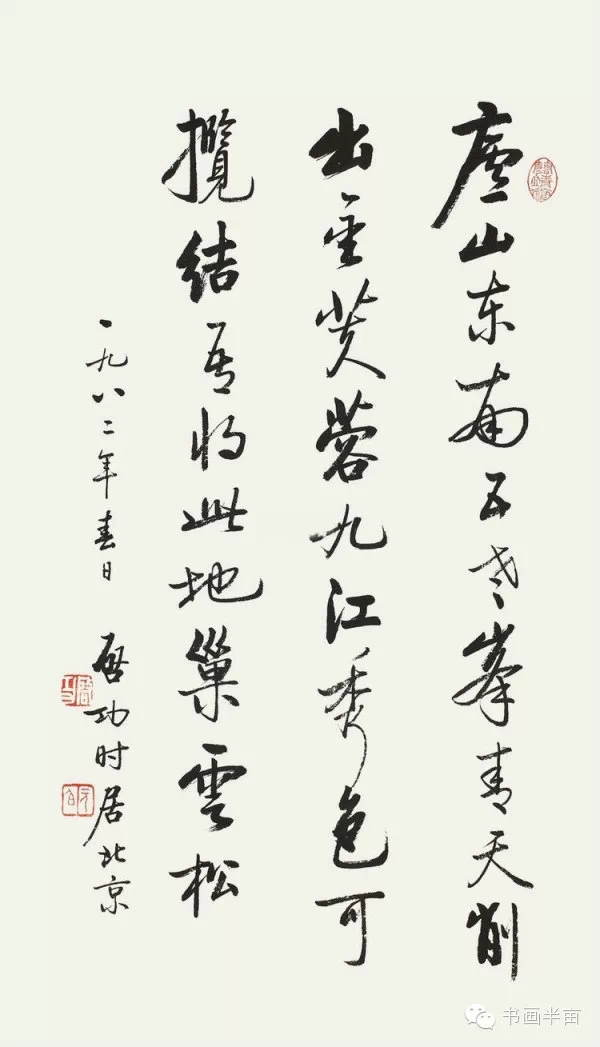 廬山东南五老峯青天削
出金芙蓉九江秀色可
攬結吾将此地巢雲松
一九八二年春日 启功时居北京
启功
元白
书画半亩